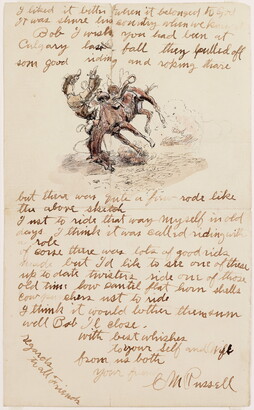 I liked it better when it belonged to God
it was shure his country when we
Bob I wish you had been at
Calgary last fall they pulled off
som good riding and roping thare
but there was quite a fiew rode like
the above sketch
I ust to ride that way myself in old
days I think it was called riding with
a role
of corse there was lots of good rids
but I'd like to see one of these
up to date twisters ride one of those
old time low cantel flat horn shells
cow punchers ust to ride
I think it would bother them som
well Bob Il close
with best whishes
to your self and wife
from us both
your
C M Russell
Regards
to all friends